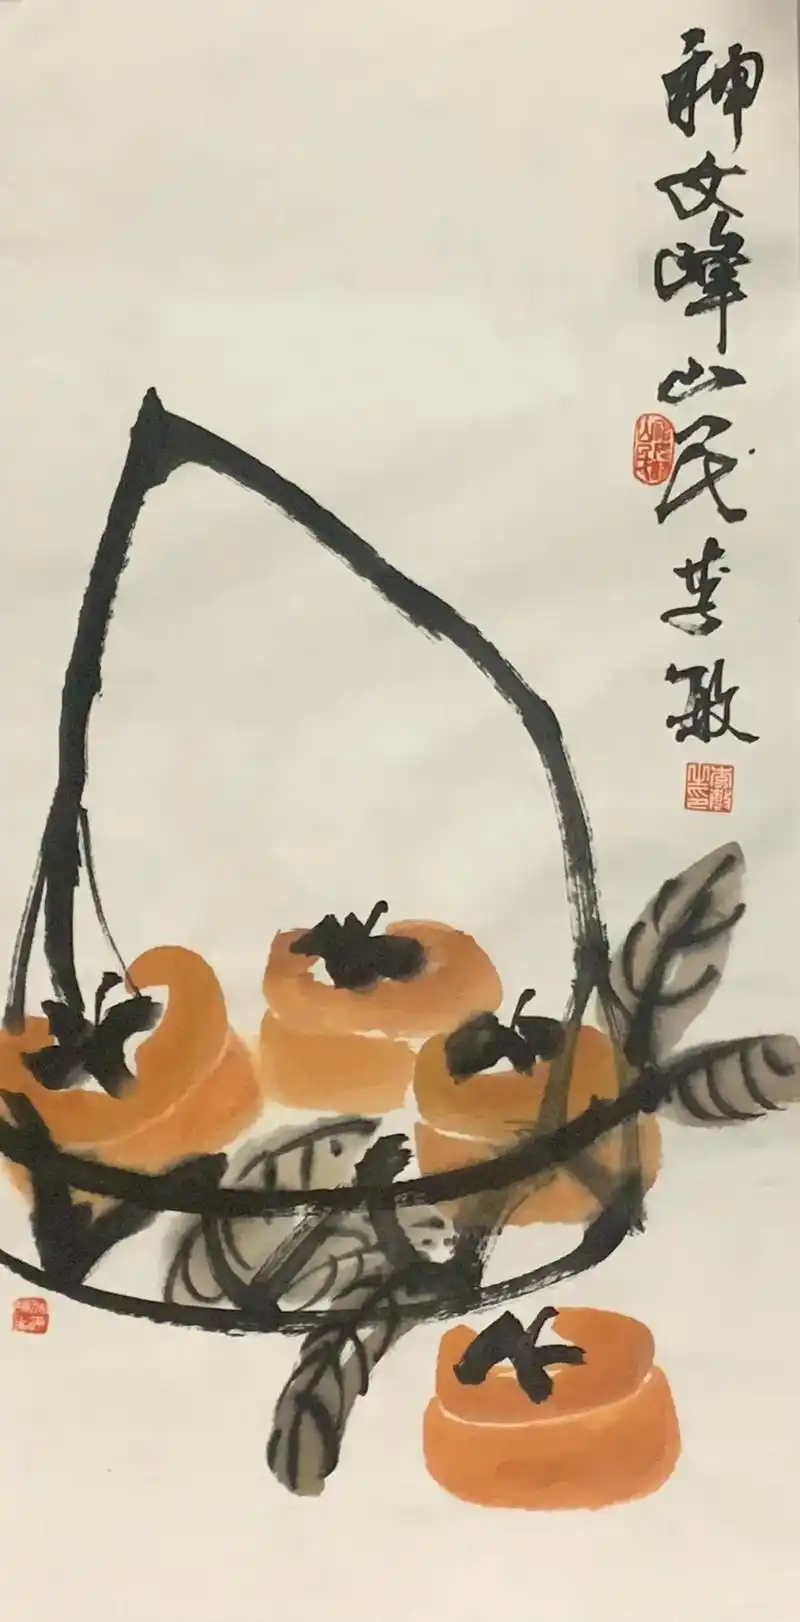 神女峰山民李敏